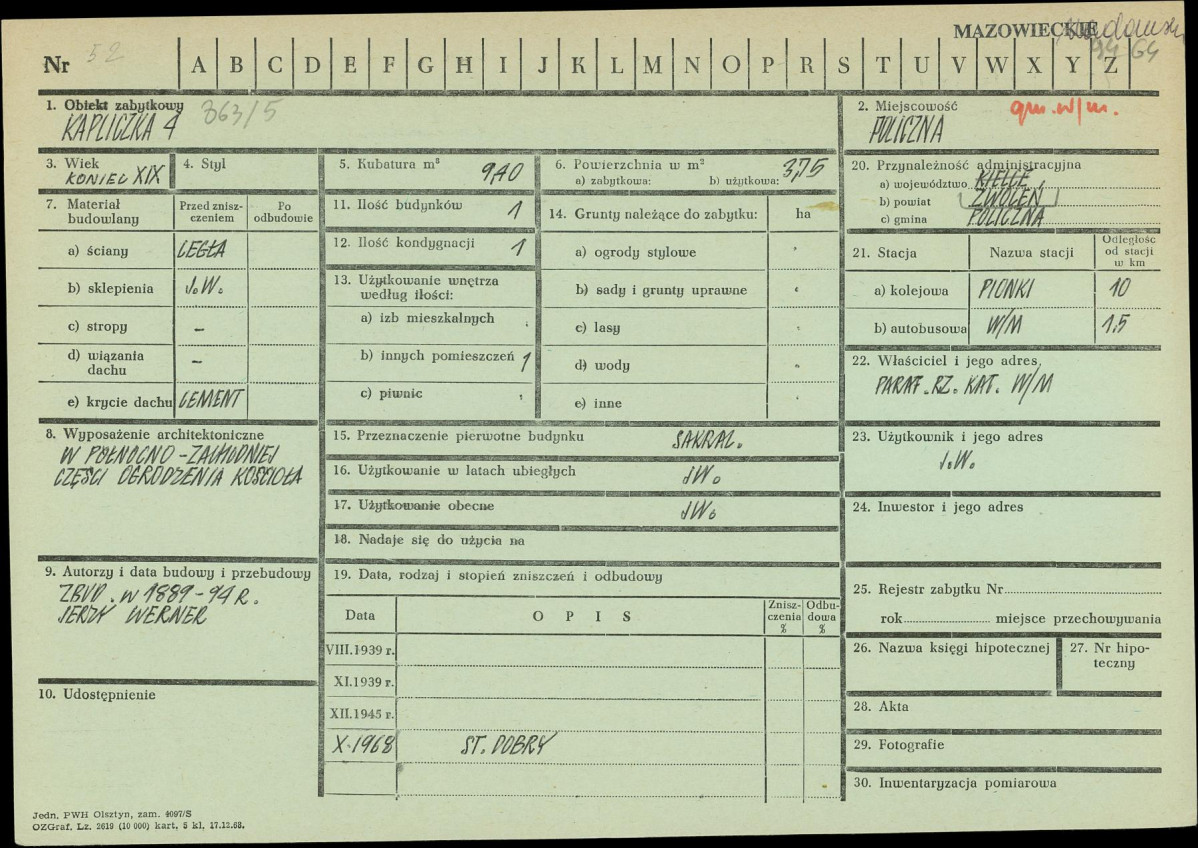 MAZOWIECKIE
94 64
Nr 52 A B C D E F G H I J K L M N O P R S T U V W X Y Z
1. Obiekt zabytkowy 363/5
KAPLICZKA 4
2. Miejscowość gm. w/m.
POLICZNA
3. Wiek
KONIEC XIX
4. Styl
5. Kubatura m³ 9,40
6. Powierzchnia w m²
a) zabytkowa: b) użytkowa: 3,75
20. Przynależność administracyjna
a) województwo KIELCE
b) powiat ZWOLEŃ
c) gmina POLICZNA
7. Materiał budowlany
Przed znisz-
czeniem
Po
odbudowie
a) ściany CEGŁA
b) sklepienia J.W.
c) stropy –
d) wiązania
dachu –
e) krycie dachu CEMENT
11. Ilość budynków 1
12. Ilość kondygnacji 1
13. Użytkowanie wnętrza
według ilości:
a) izb mieszkalnych
b) innych pomieszczeń 1
c) piwnic
14. Grunty należące do zabytku: ha
a) ogrody stylowe
b) sady i grunty uprawne
c) lasy
d) wody
e) inne
21. Stacja Nazwa stacji
Odległość
od stacji
w km
a) kolejowa PIONKI 10
b) autobusowa W/M 1,5
22. Właściciel i jego adres,
PARAF. RZ. KAT. W/M
8. Wyposażenie architektoniczne
W PÓŁNOCNO-ZACHODNIEJ
CZĘŚCI OGRODZENIA KOŚCIOŁA
15. Przeznaczenie pierwotne budynku SAKRAL.
16. Użytkowanie w latach ubiegłych JW.
17. Użytkowanie obecne JW.
18. Nadaje się do użycia na
23. Użytkownik i jego adres
J.W.
24. Inwestor i jego adres
9. Autorzy i data budowy i przebudowy
ZBUD. W 1889-94 R.
JERZY WERNER
10. Udostępnienie
19. Data, rodzaj i stopień zniszczeń i odbudowy
Data O P I S
Znisz-
czenia
%
Odbu-
dowa
%
VIII.1939 r.
XI.1939 r.
XII.1945 r.
X.1968 ST. DOBRY
25. Rejestr zabytku Nr
rok miejsce przechowywania
26. Nazwa księgi hipotecznej
27. Nr hipo-
teczny
28. Akta
29. Fotografie
30. Inwentaryzacja pomiarowa
Jedn. PWH Olsztyn, zam. 4097/S
OZGraf. Lz. 2619 (10 000) kart. 5 kl. 17.12.68.